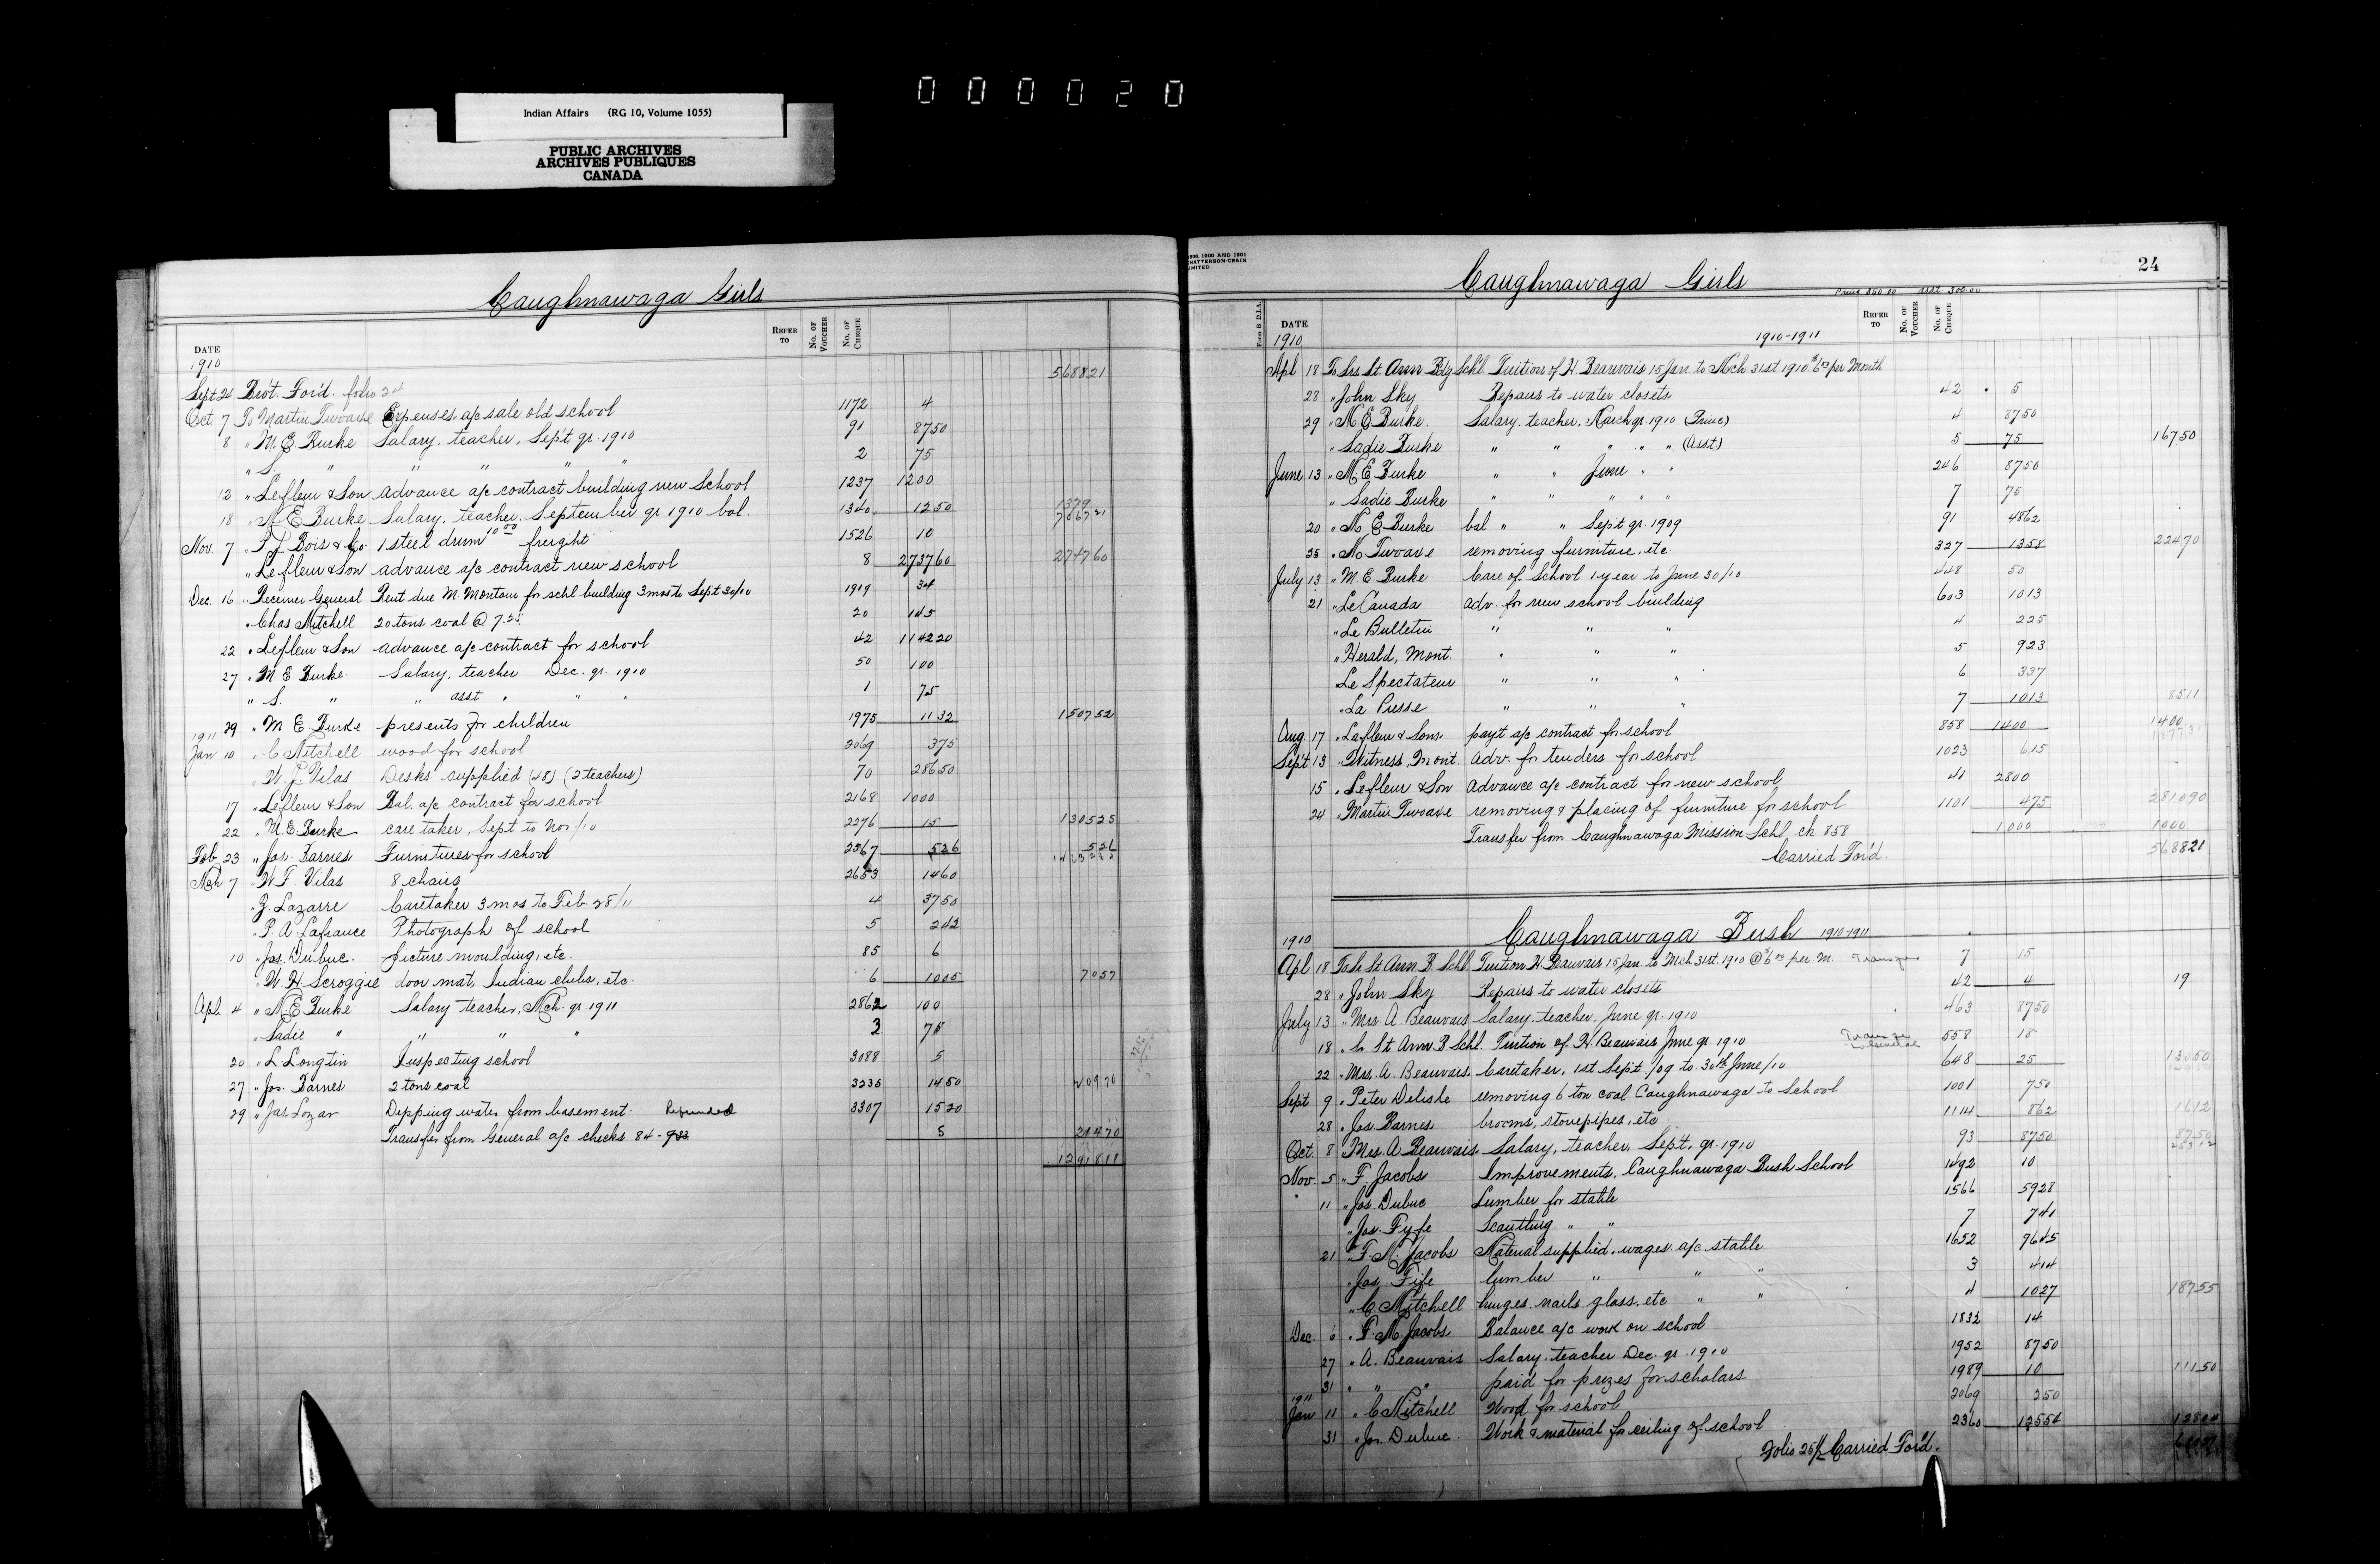 000020
Indian Affairs (RG 10, Volume 1055)
PUBLIC ARCHIVES
ARCHIVES PUBLIQUES
CANADA
Caughnawaga Girls
DATE REFER TO No. OF VOUCHER No. OF CHEQUE
1910
568821
Sept 24 Bro't. For'd. folio 24
Oct. 7 To Martin Twoaxe Expenses a/c sale old school 1172 4
8 " M. E. Burke Salary, teacher, Sept qr. 1910 91 8750
" S. " " " " " 2 75
12 " Lefleur & Son advance a/c contract building new School 1237 1200
18 " M E Burke Salary, teacher, September qr. 1910 bal. 1340 1250 1379
Nov. 7 " Bois & Co. 1 steel drum 10 00 freight 1526 10
" Lefleur & Son advance a/c contract new school 8 273760 274760
Dec. 16 " Receiver General Rent due M. Montour for schl building 3 mos to Sept 30/10 1919 34
" Chas Mitchell 20 tons coal @ 7.25 20 145
22 " Lefleur & Son advance a/c contract for school 42 114220
27 " M E Burke Salary, teacher Dec. qr. 1910 50 100
" S. " " asst " " " 1 75
29 " M. E. Burke presents for children 1975 1132 150752
1911
Jan 10 " C Mitchell wood for school 2069 375
" W. F. Vilas Desks supplied (48) (2 teachers) 70 28650
17 " Lefleur & Son Bal. a/c contract for school 2168 1000
22 " M. E. Burke care taker, Sept to Nov/10 2276 15 130525
Feb 23 " Jas. Barnes Furnitures for school 2367 526 526
Mch 7 " W F. Vilas 8 chairs 2653 1460
" Z. Lazarre Caretaker 3 mos to Feb 28/11 4 3750
" P. A. Lafrance Photograph of school 5 242
10 " Jos. Dubuc. picture moulding, etc. 85 6
" W. H. Scroggie door mat, Indian clubs, etc. 6 1005 7057
Apl. 4 " M. E. Burke Salary teacher, Mch. qr. 1911 2862 100
" Sadie " " " " 3 75
20 " L. Longtin Inspecting school 3088 5
27 " Jas. Barnes 2 tons coal 3235 1450
29 " Jas Lozar Dipping water from basement. Refunded 3307 1520
Transfer from General a/c checks 84 - 933 5 21470
1291811
1898, 1900 AND 1901
CHATTERSON-CRAIN
LIMITED
24
Caughnawaga Girls
Princ 350.00 asst 300.00
Form B D.I.A.
DATE REFER TO No. OF VOUCHER No. OF CHEQUE
1910 1910-1911
Apl 18 To Srs St. Ann Bdg Schl. Tuition of H. Beauvais 15 Jan. to Mch 31st 1910 $6 00 per Month
28 " John Sky Repairs to water closets 42 5
29 " M E Burke. Salary, teacher, March qr. 1910 (Princ) 4 8750
" Sadie Burke " " " " " (Asst) 5 75 16750
June 13 " M E Burke " " June " " 246 8750
" Sadie Burke " " " " " 7 75
20 " M. E Burke bal " " Sept qr. 1909 91 4862
25 " M. Twoaxe removing furniture, etc 327 1358 22470
July 13 " M. E. Burke Care of School 1 year to June 30/10 448 50
21 " Le Canada adv. for new school building 603 1013
" Le Bulletin " " " 4 225
" Herald, Mont. " " " 5 923
Le Spectateur " " " 6 337
" La Presse " " " 7 1013 8511
Aug 17 " Lafleur & Sons pay't a/c contract for school 858 1400 1400
Sept 13 " Witness, Mont. Adv. for tenders for school 1023 615
15 " Lefleur & Son Advance a/c contract for new school 41 2800
24 " Martin Twoaxe removing & placing of furniture for school 1101 475 281090
Transfer from Caughnawaga Mission Schl ck 858 1000 1000
Carried For'd. 568821
Caughnawaga Bush 1910-1911
1910
Apl 18 To Sr St Ann B Schl. Tuition H. Beauvais 15 Jan. to Mch 31st. 1910 @ $6 00 per M. Transfer 7 15
28 " John Sky Repairs to water closets 42 4 19
July 13 " Mrs A. Beauvais Salary, teacher, June qr. 1910 463 8750
18 " Sr St Ann B Schl. Tuition of H. Beauvais June qr. 1910 558 18
22 " Mrs. A. Beauvais. Caretaker, 1st Sept /09 to 30th June/10 648 25 13050
Sept 9 " Peter Delisle removing 6 ton coal Caughnawaga to School 1001 750
28 " Jas Barnes brooms, stovepipes, etc 1114 862 1612
Oct. 8 " Mrs. A Beauvais Salary, teacher, Sept. qr. 1910 93 8750 8750
Nov. 5 " F. Jacobs Improvements, Caughnawaga Bush School 1492 10
11 " Jos. Dubuc Lumber for stable 1566 5928
" Jas. Fyfe Scantling " " 7 741
21 " F. M. Jacobs Material supplied, wages a/c stable 1652 9645
" Jas. Fife lumber " " " 3 414
" C. Mitchell hinges nails glass, etc " " 4 1027 18755
Dec. 6 " F. M. Jacobs Balance a/c work on school 1832 14
27 " A. Beauvais Salary, teacher Dec. qr. 1910 1952 8750
31 " " " paid for prizes for scholars 1989 10 11150
1911
Jan 11 " C Mitchell Wood for school 2069 250
31 " Jos. Dubuc. Work & material for ceiling of school 2360 12554 12804
Folio 25 Carried For'd.